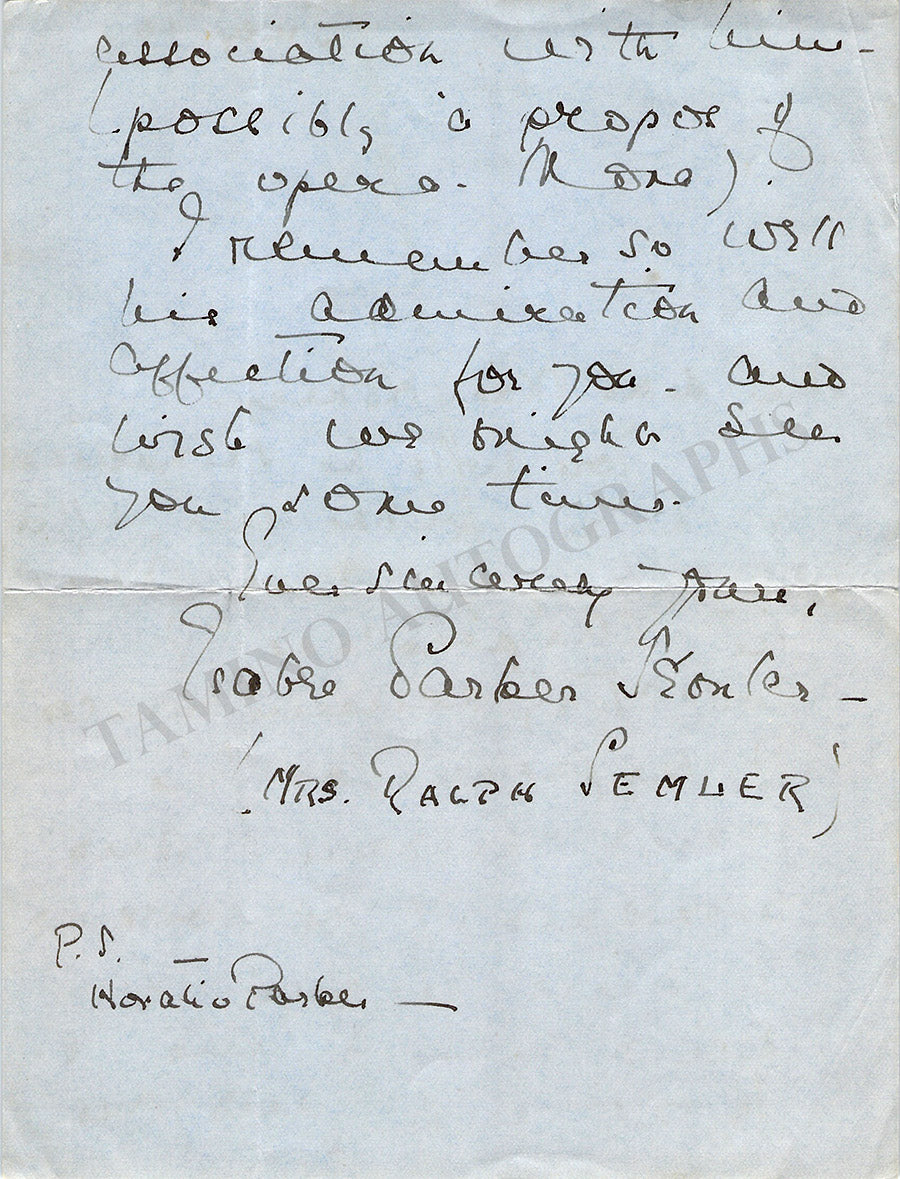 association with him -
(possibly à propos of
the opera - Mona).
I remember so well
his admiration and
affection for you - and
wish we might see
you some time.
Ever sincerely yours,
Isabel Parker Semler -
(MRS. RALPH SEMLER)
P.S. -
Horatio Parker -
TAMINO AUTOGRAPHS